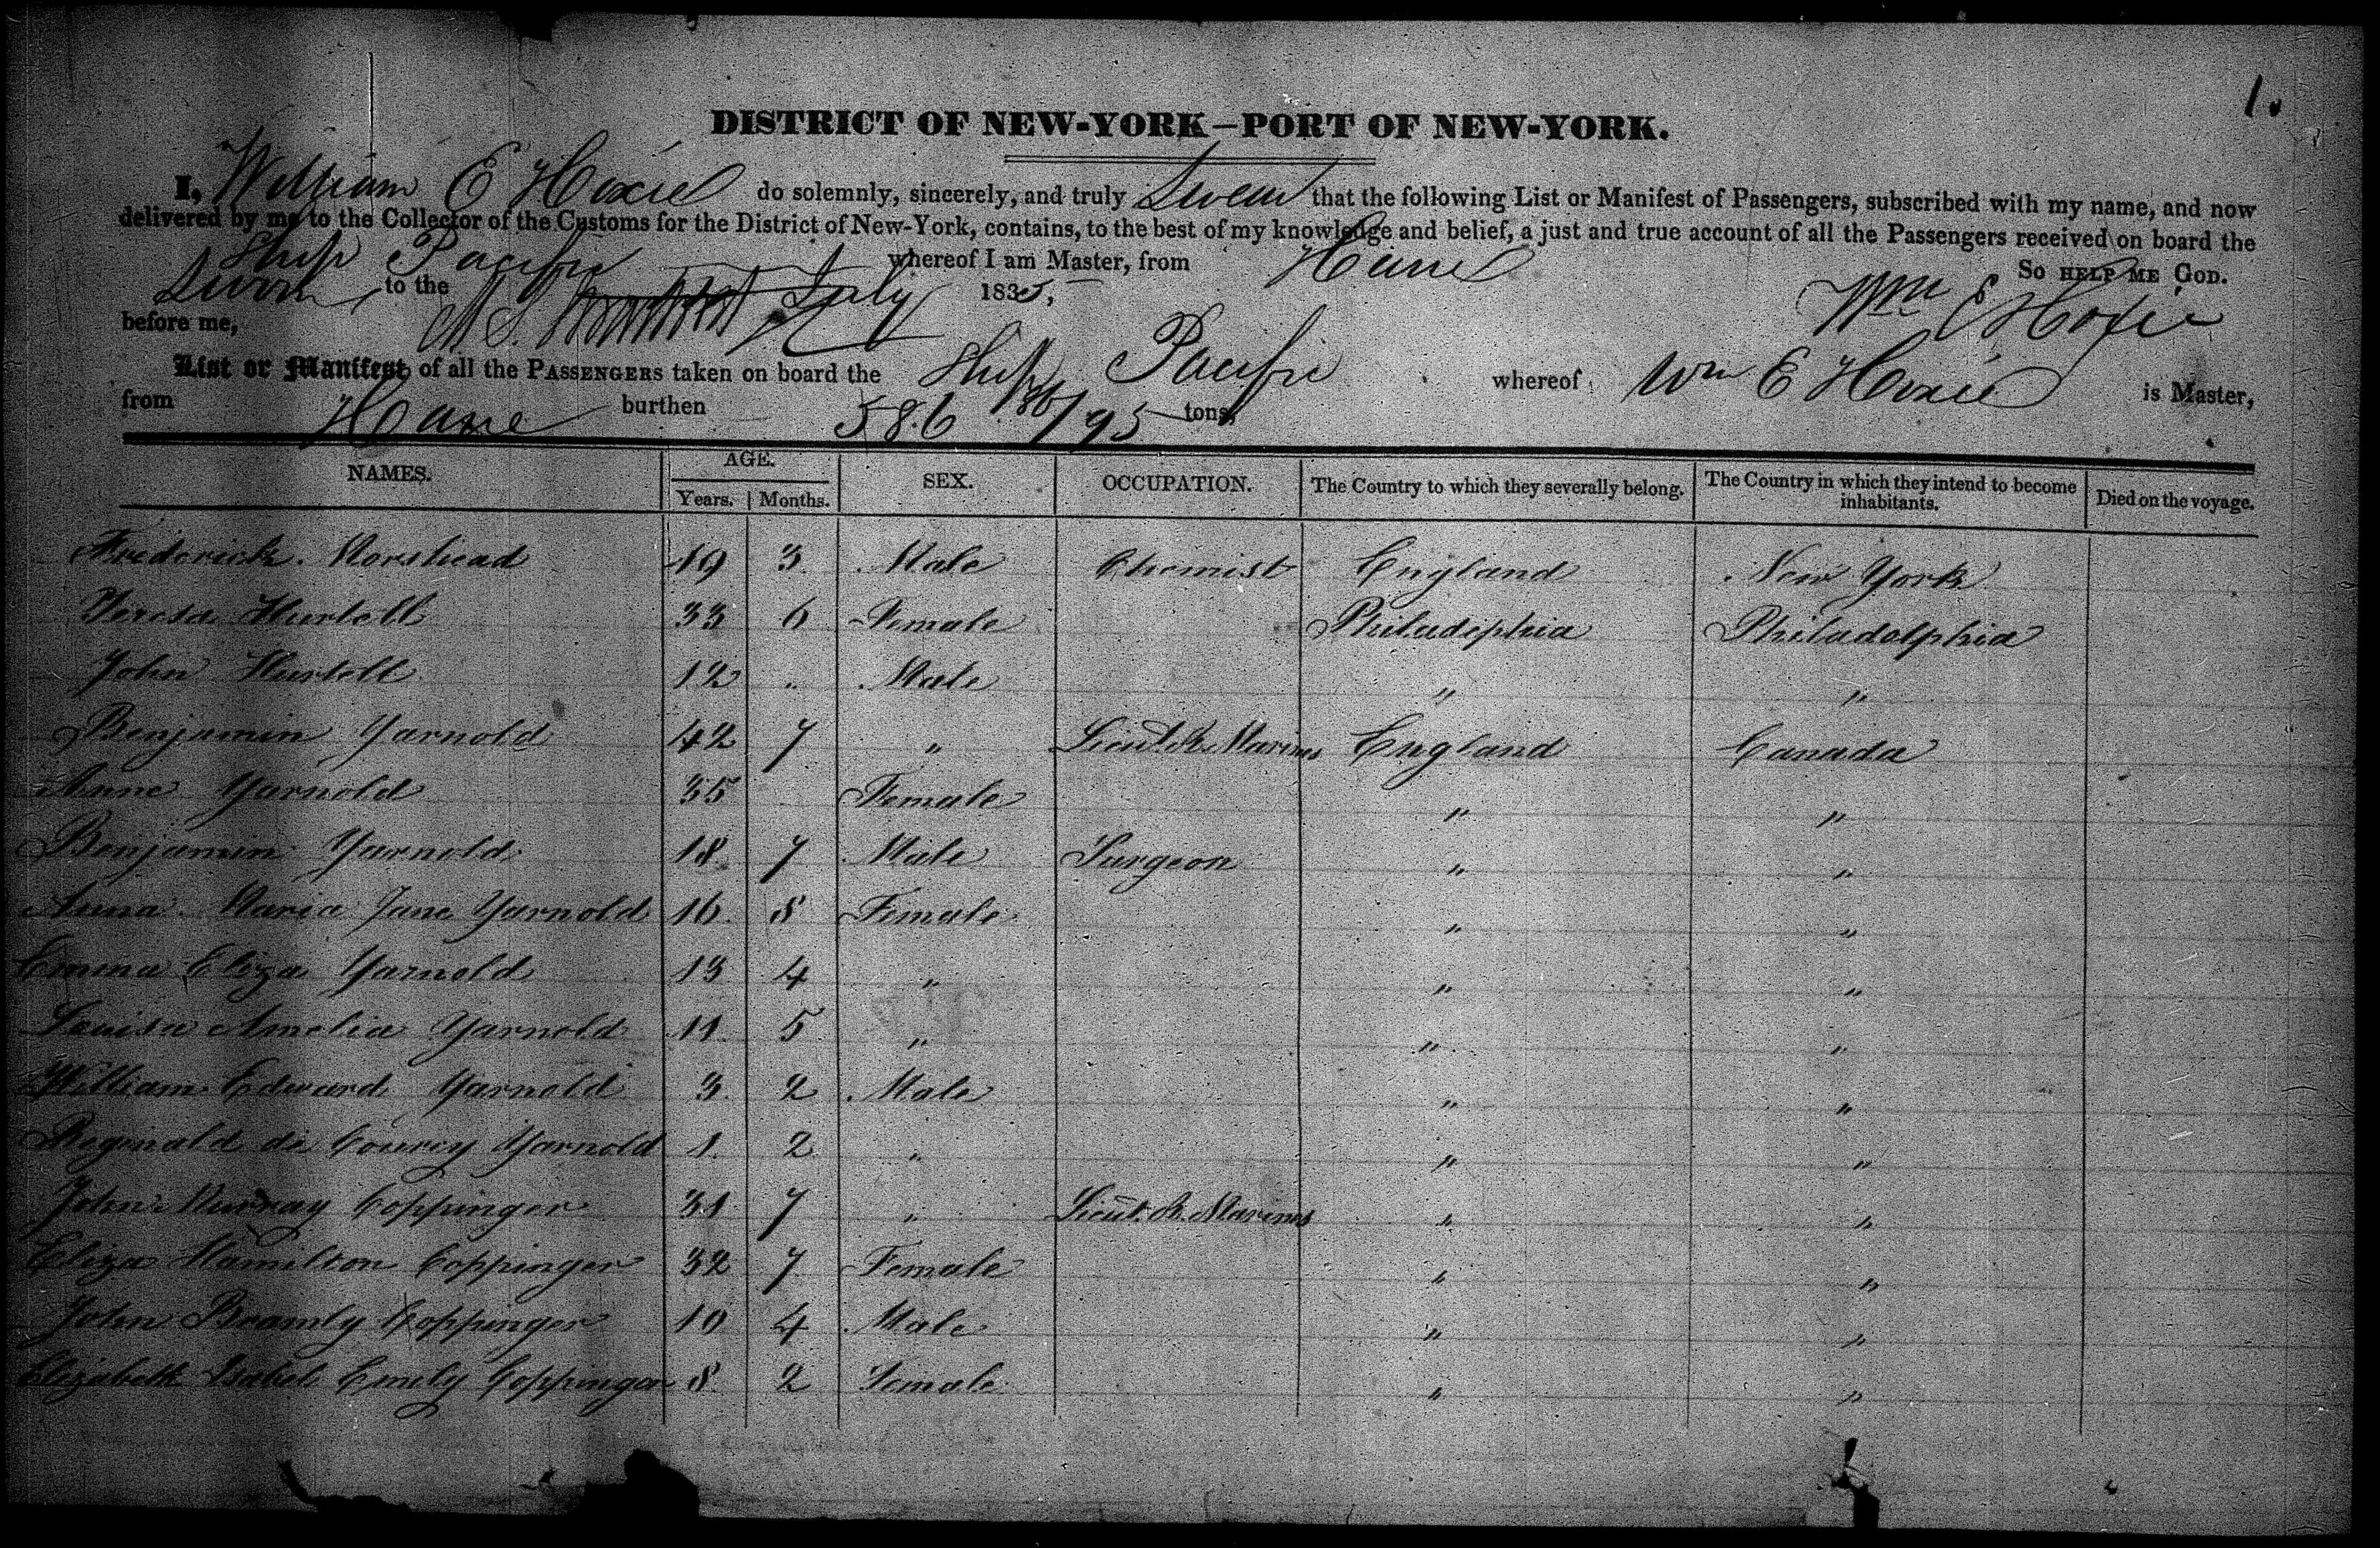 1.
DISTRICT OF NEW-YORK—PORT OF NEW-YORK.
I, William E Hoxie do solemnly, sincerely, and truly Swear that the following List or Manifest of Passengers, subscribed with my name, and now
delivered by me to the Collector of the Customs for the District of New-York, contains, to the best of my knowledge and belief, a just and true account of all the Passengers received on board the
Ship Pacific whereof I am Master, from Havre So HELP ME GOD.
Sworn to the July 1835, Wm E Hoxie
before me,
List or Manifest of all the PASSENGERS taken on board the Ship Pacific whereof Wm E Hoxie is Master,
from Havre burthen 586 /95 tons
NAMES. AGE. SEX. OCCUPATION. The Country to which they severally belong. The Country in which they intend to become inhabitants. Died on the voyage.
Years. Months.
Frederick Morshead 19 3 Male Chemist England New York
Teresa Hurtell 33 6 Female Philadelphia Philadelphia
John Hurtell 12 " Male " "
Benjamin Yarnold 42 7 " Lieut R. Marines England Canada
Anne Yarnold 35 Female " "
Benjamin Yarnold 18 7 Male Surgeon " "
Anna Maria Jane Yarnold 16 8 Female " "
Emma Eliza Yarnold 13 4 " " "
Louisa Amelia Yarnold 11 5 " " "
William Edward Yarnold 3 2 Male " "
Reginald de Courcy Yarnold 1 2 " " "
John Murray Coppinger 31 7 " Lieut. R. Marines " "
Eliza Hamilton Coppinger 32 7 Female " "
John Bramly Coppinger 10 4 Male " "
Elizabeth Isabel Emily Coppinger 8 2 Female " "